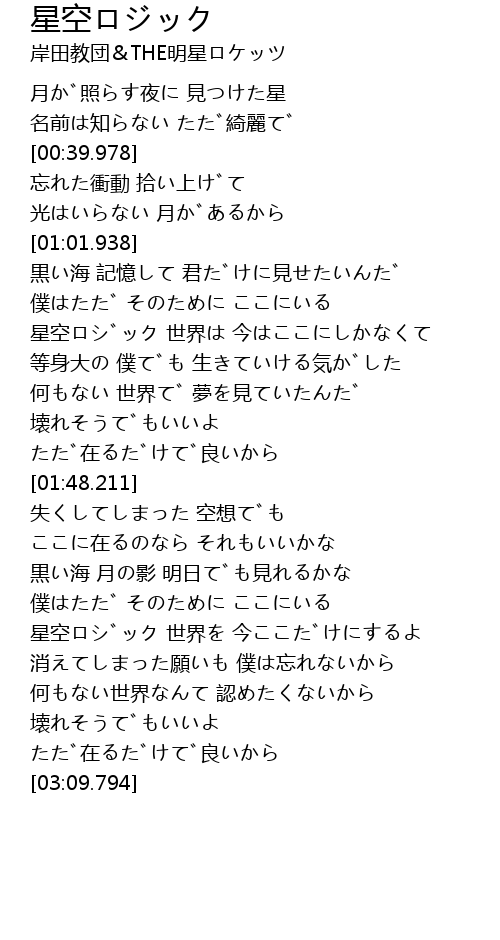 星空ロジック
岸田教団＆THE明星ロケッツ
月が照らす夜に 見つけた星
名前は知らない ただ綺麗で
[00:39.978]
忘れた衝動 拾い上げて
光はいらない 月があるから
[01:01.938]
黒い海 記憶して 君だけに見せたいんだ
僕はただ そのために ここにいる
星空ロジック 世界は 今はここにしかなくて
等身大の 僕でも 生きていける気がした
何もない 世界で 夢を見ていたんだ
壊れそうでもいいよ
ただ在るだけで良いから
[01:48.211]
失くしてしまった 空想でも
ここに在るのなら それもいいかな
黒い海 月の影 明日でも見れるかな
僕はただ そのために ここにいる
星空ロジック 世界を 今ここだけにするよ
消えてしまった願いも 僕は忘れないから
何もない世界なんて 認めたくないから
壊れそうでもいいよ
ただ在るだけで良いから
[03:09.794]